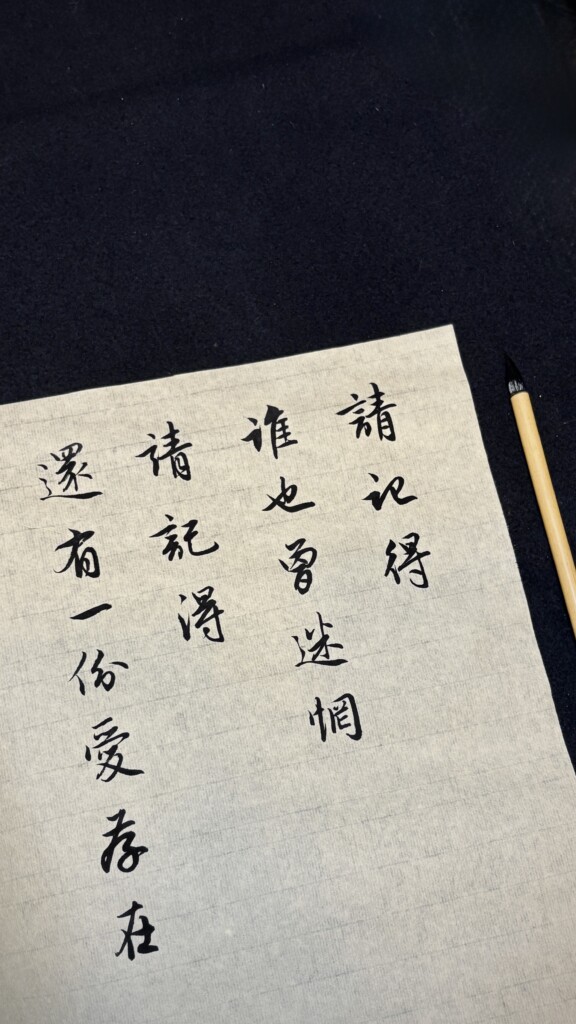 請記得
谁也曾迷惘
请記得
還有一份愛存在